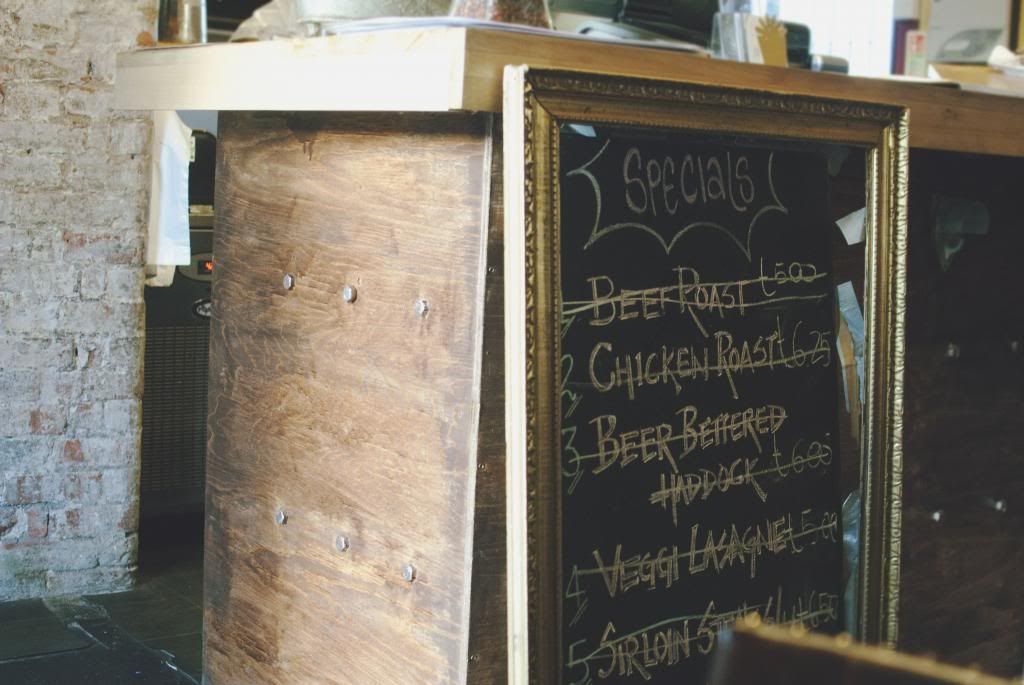 Specials
BEEF ROAST £5.00
2 CHICKEN ROAST £6.25
3 BEER BETTERED
HADDOCK £6.00
4 VEGGI LASAGNE £5.00
5 SIRLOIN